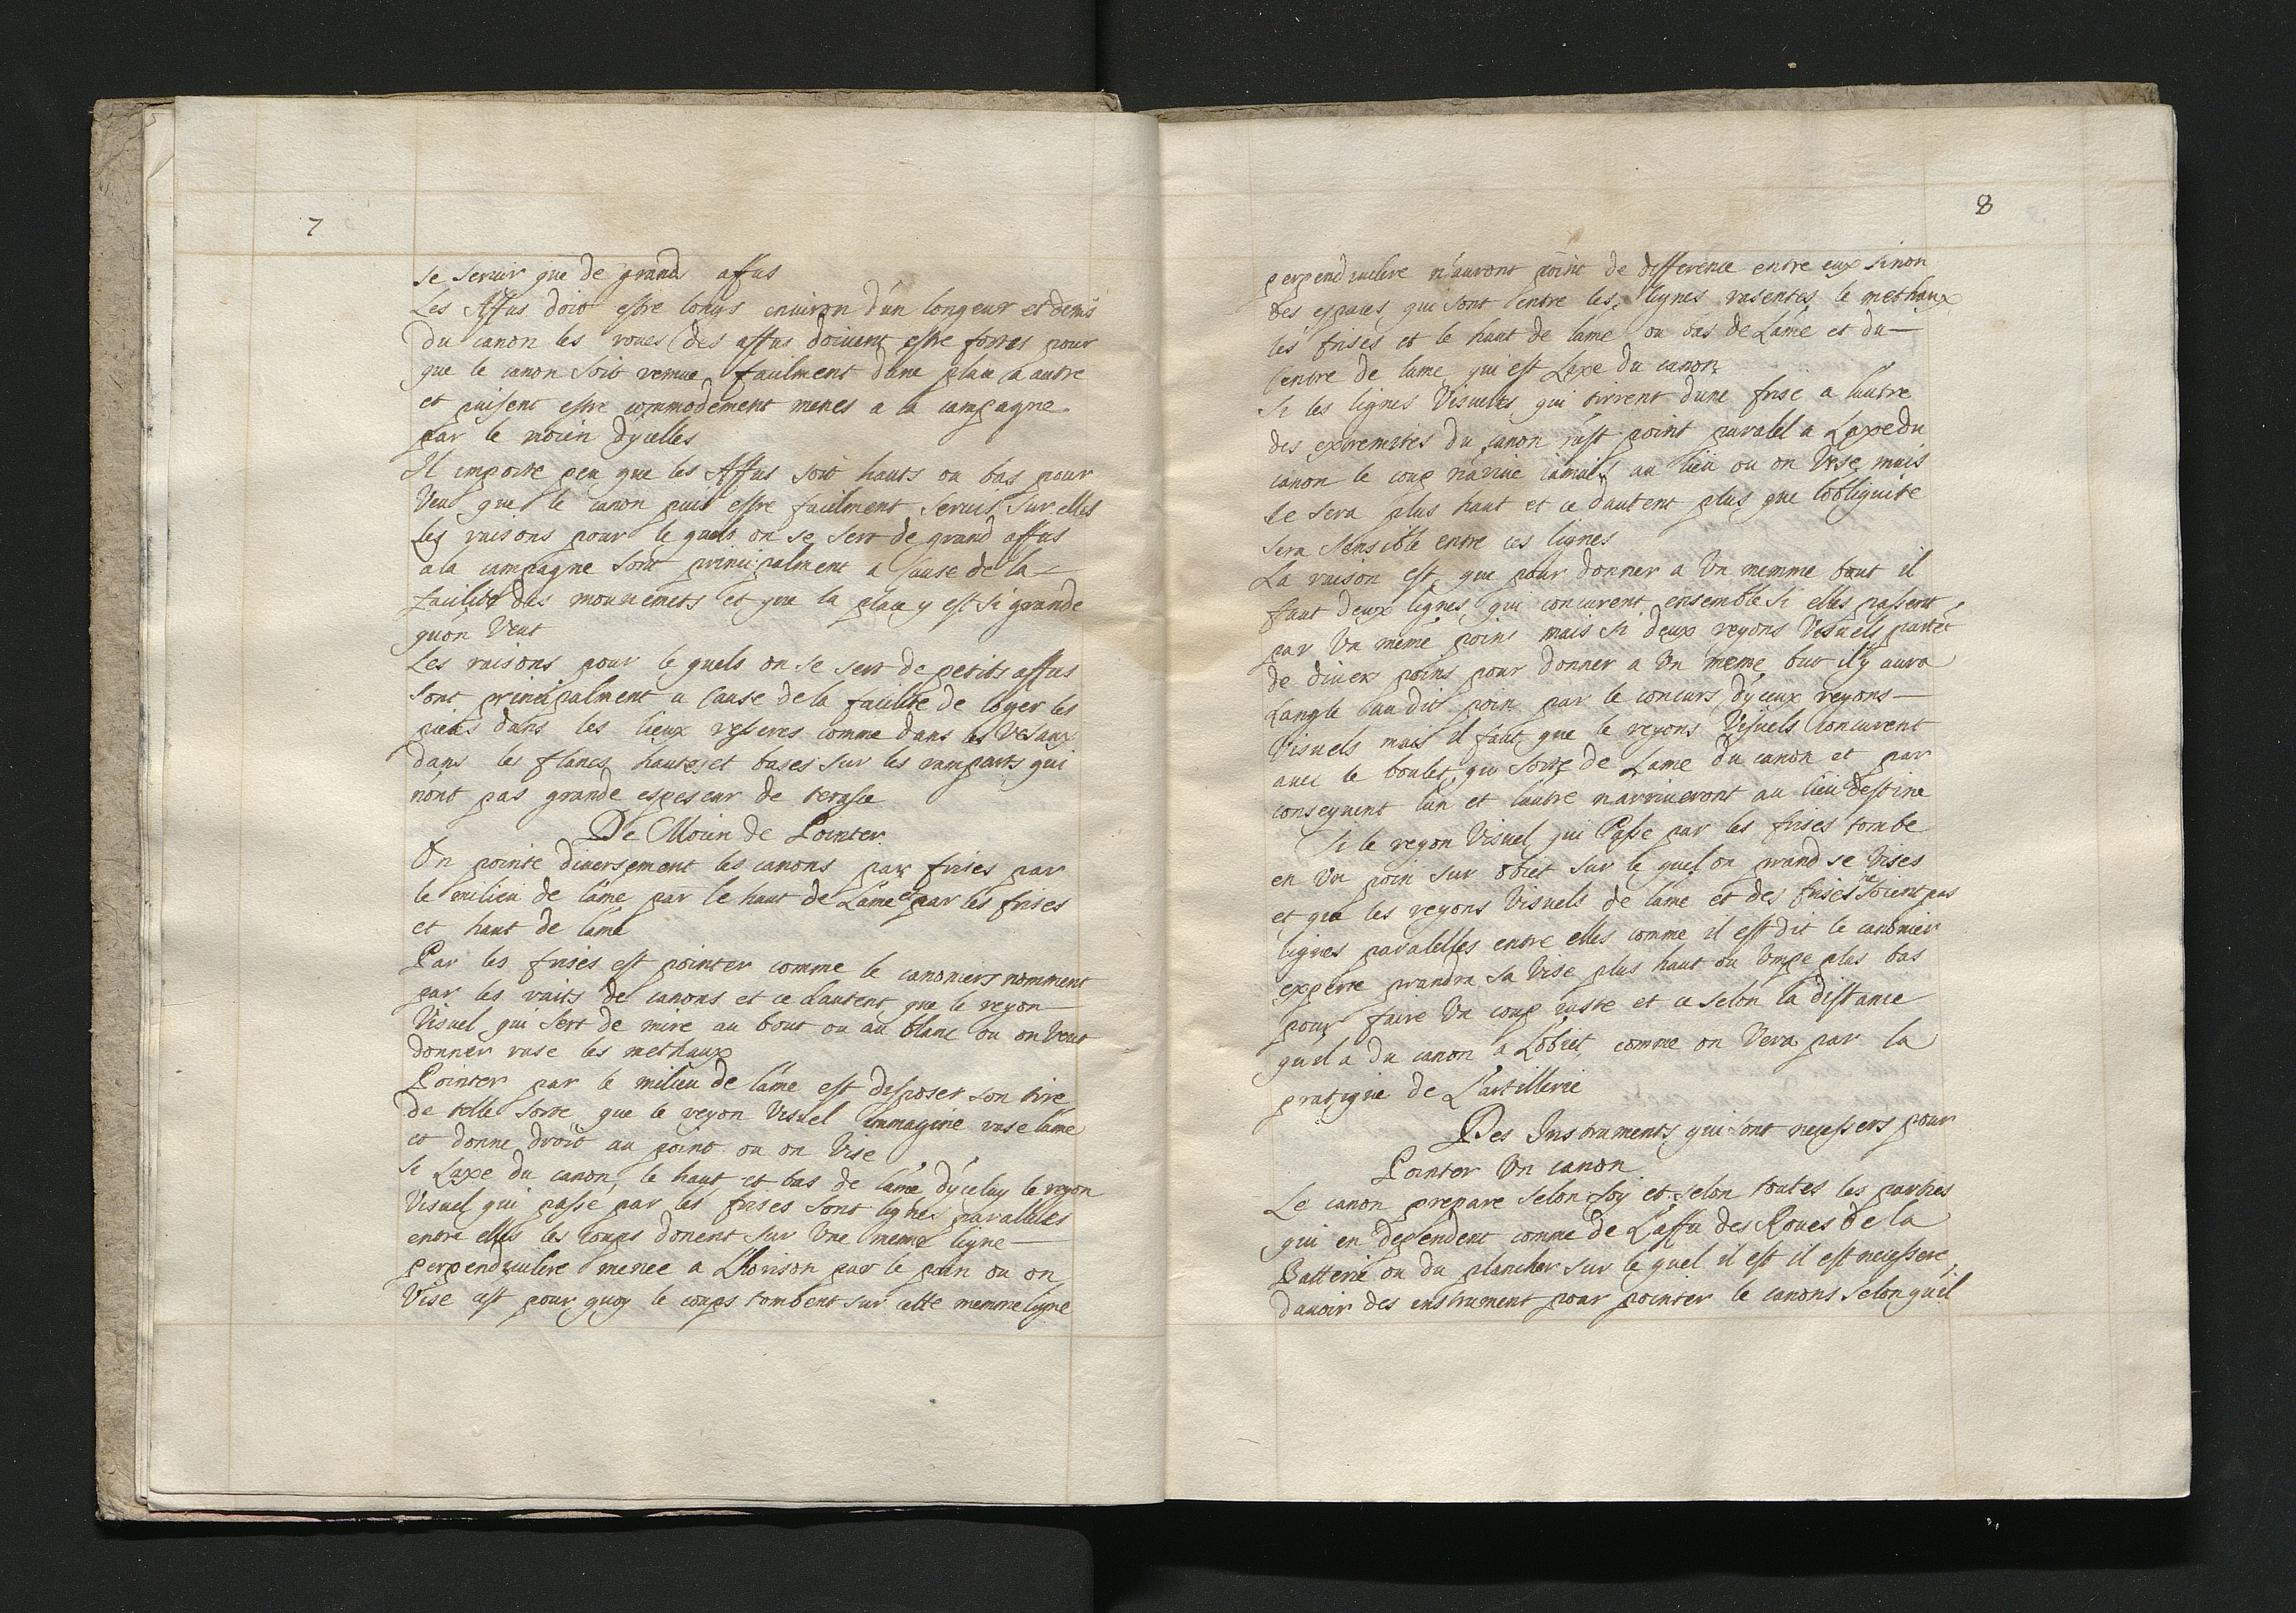 7
se seruir que de grands affus
Les Affus doit estre longs enuiron d'un longeur et demis
du canon les roues des affus doiuent estre fortes pour
que le canon soit remue facilment dune place a autre
et puisent estre commodement menes a la campagne
par le moien dycelles
Il importe peu que les Affus soit hauts ou bas pour
Veu que le canon puis estre facilment seruis sur elles
Les raisons pour le quels on se sert de grand affus
a la campagne sont principalment a cause de la
facilité des mouuemets et que la place y est si grande
qu'on Veut
Les raisons pour le quels on se sert de petits affus
sont principalment a cause de la facilite de loger les
pieces dans les lieux reseres comme dans les Vesaux
dans les flancs hautes et bases sur les ramparts qui
n'ont pas grande espeseur de terasse
De Moien de Pointer
On pointe diuersement les canons par frises par
le milieu de l'ame par le haut de L'ame et par les frises
et haut de l'ame
Par les frises est pointer comme le canoniers nomment
par les raits de canons et ce dautent que le reyon
Visuel qui sert de mire au bout ou au blanc ou on Veut
donner rase les methaux
Pointer par le milieu de l'ame est disposer son tire
de telle sorte que le reyon Visuel immagine rase l'ame
et donne droit au point ou on Vise
Si Laxe du canon, le haut et bas de l'ame d'yceluy le reyon
Visuel qui passe par les frises sont lignes paralleles
entre elles les coups donent sur Une meme ligne
perpendiculere menee a Lhorison par le poin ou on
Vise cest pour quoy le coups tombent sur cette memme ligne
8
perpendiculere n'auront point de difference entre eux sinon
des espaces qui sont entre les lignes rasentes le methaux
les frises et le haut de lame ou bas de L'ame et du
Centre de lame qui est Laxe du canon
Si les lignes Visueles qui tirrent dune frise a l'autre
des extremites du canon n'est point paralel a Laxe du
canon le coup n'ariue iamais au lieu ou on Vise mais
se sera plus haut et ce dautent plus que lobliquite
sera sensible entre ces lignes
La raison est que pour donner a Un memme bout il
faut deux lignes qui concurent ensemble si elles passent
par Un meme poins mais si deux reyons Visuels partet
de diuers poins pour donner a Un meme but il y aura
Langle au dit poin par le concurs d'yceux reyons
Visuels mais il faut que le reyons Visuels concurent
auec le boulet qui sorte de Lame du canon et par
consequent lun et lautre n'arriueront au lieu destine
Si le reyon Visuel qui Passe par les frises tombe
en Un poin sur obiet sur le quel on prand se Vises
et que les reyons Visuels de l'ame et des frises ne soient pas
lignes paralelles entre elles comme il est dit le canonier
experte prandra sa Vise plus haut ou plus bas
pour faire Un coup iuste et ce selon la distance
qu'il a du canon a L'obiet, comme on Vera par la
pratique de L'artillerie
Des Instruments qui sont necessers pour
Pointer Un canon
Le canon prepare selon soy et selon toutes les parties
qui en dependent comme de L'affu des Roues de la
Batterie ou du plancher sur le quel il est il est necessere
dauoir des enstrument pour pointer le canons selon qu'il